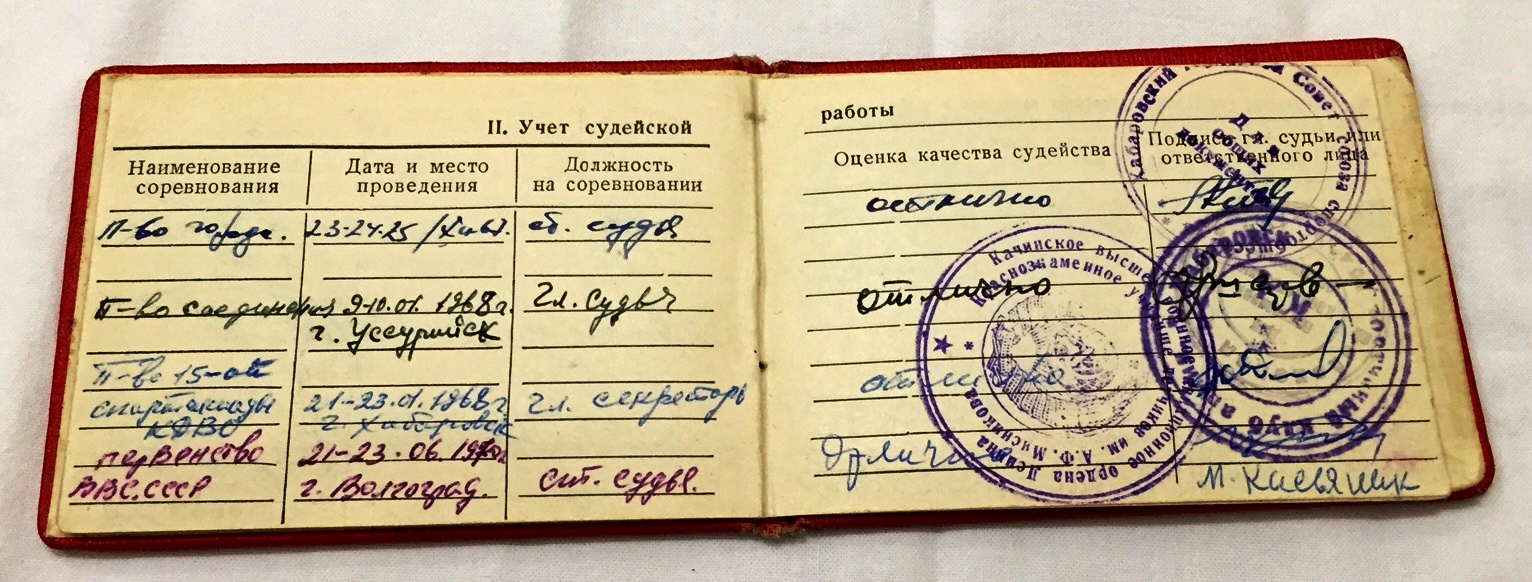 II. Учет судейской
Наименование соревнования
Дата и место проведения
Должность на соревновании
П-во города.
23-24-25
ст. судья
П-во соединения
9-10.01.1968г.
г. Уссурийск
Гл. судья
П-во 15-ой
спартакиады
КДВО
21-23.01.1968г
г. Хабаровск
гл. секретарь
первенство
ВВС.СССР
21-23.06.1970г
г. Волгоград.
ст. судья.
работы
Оценка качества судейства
Подпись гл. судьи или ответственного лица
отлично
отлично
отлично
Отлично
М. Касьяник
Хабаровский
Совет союза спорт
Для общих документов
Качинское высшее
ордена Ленина
Краснознаменное училище летчиков им. А.Ф. Мясникова
клуб